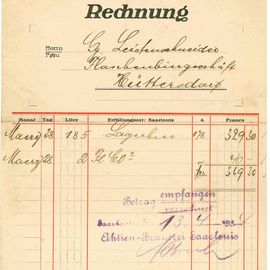 Rechnung
Herrn
Frau
G. Leistenschneider
Flaschenbiergeschäft
Hüttersdorf
Monat Tag Liter Erfüllungsort: Saarlouis à Francs
März 28 185 Lagerbier 178 329 30
März 28 2 Fl CO² 40
Fr 369 30
Betrag empfangen
Saarlouis 13. 4. 4
Aktien-Brauerei Saarlouis